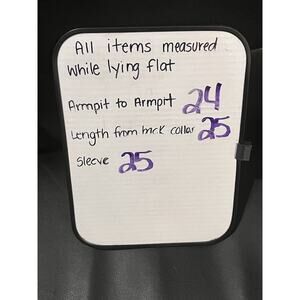 All items measured
while lying flat
Armpit to Armpit 24
Length from back collar 25
Sleeve 25